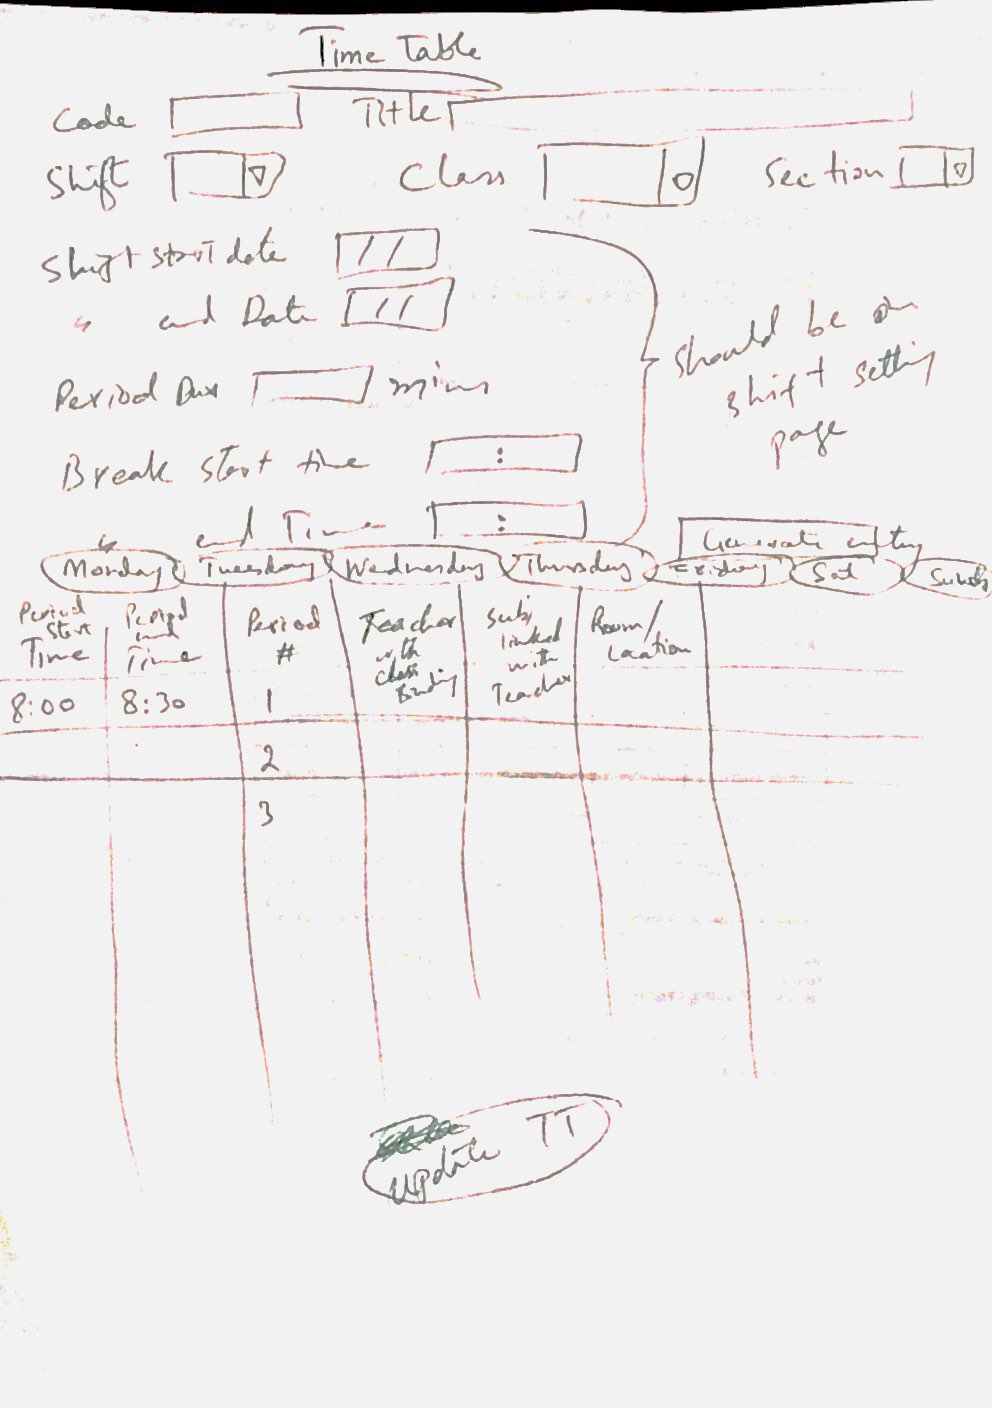 Time Table
Code Title
Shift Class Section
Shift start date / /
" end Date / /
Period Dur mins
should be on
shift setting
page
Break start time :
" end Time :
Generate entry
Monday Tuesday Wednesday Thursday Friday Sat Sunday
Period Start Time
Period end Time
Period #
Teacher with Class Binding
Subj linked with Teacher
Room/ Location
8:00 8:30 1
2
3
Update TT